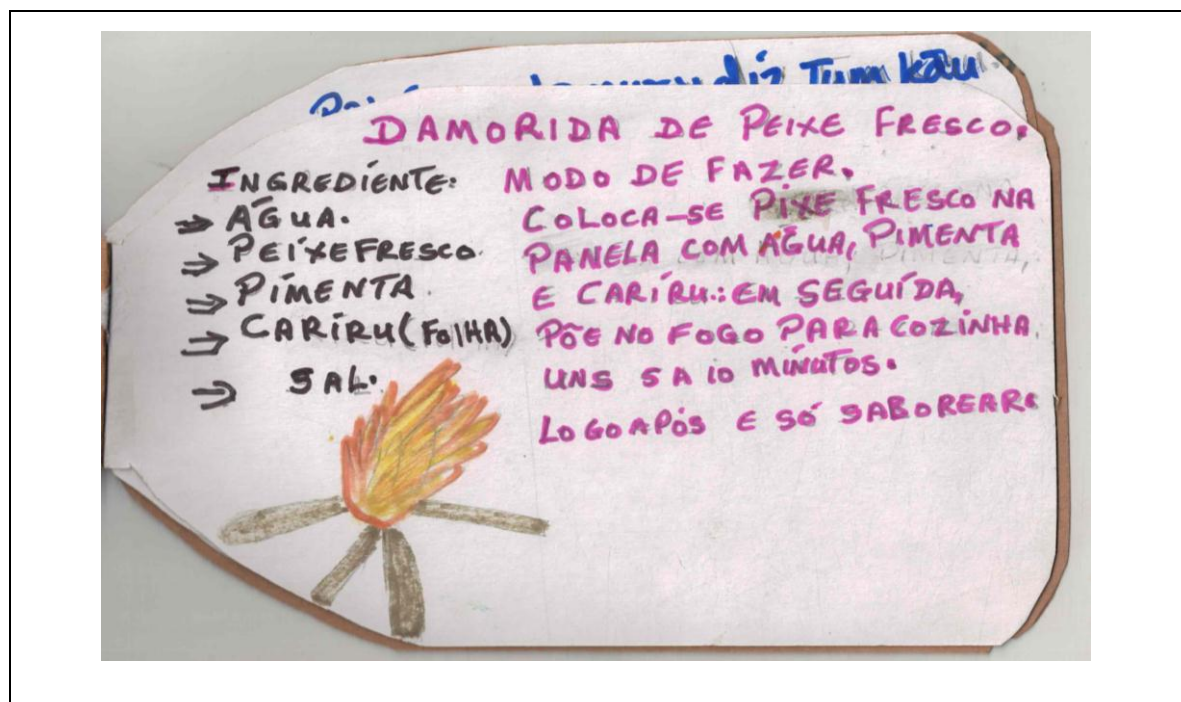 diz Tum kãu
DAMORIDA DE PEIXE FRESCO.
INGREDÍENTE:
⇒ ÁGUA.
⇒ PEÍXE FRESCO.
⇒ PÍMENTA.
⇒ CARÍRU (FOlHA)
⇒ SAL.
MODO DE FAZER.
COLOCA-SE PIXE FRESCO NA
PANELA COM AGUA, PIMENTA
E CARÍRU.: EM SEGUÍDA,
PÕE NO FOGO PARA COZINHA.
UNS 5 A 10 MÍNUTOS.
LOGO APÓS E SÓ SABOREAR.